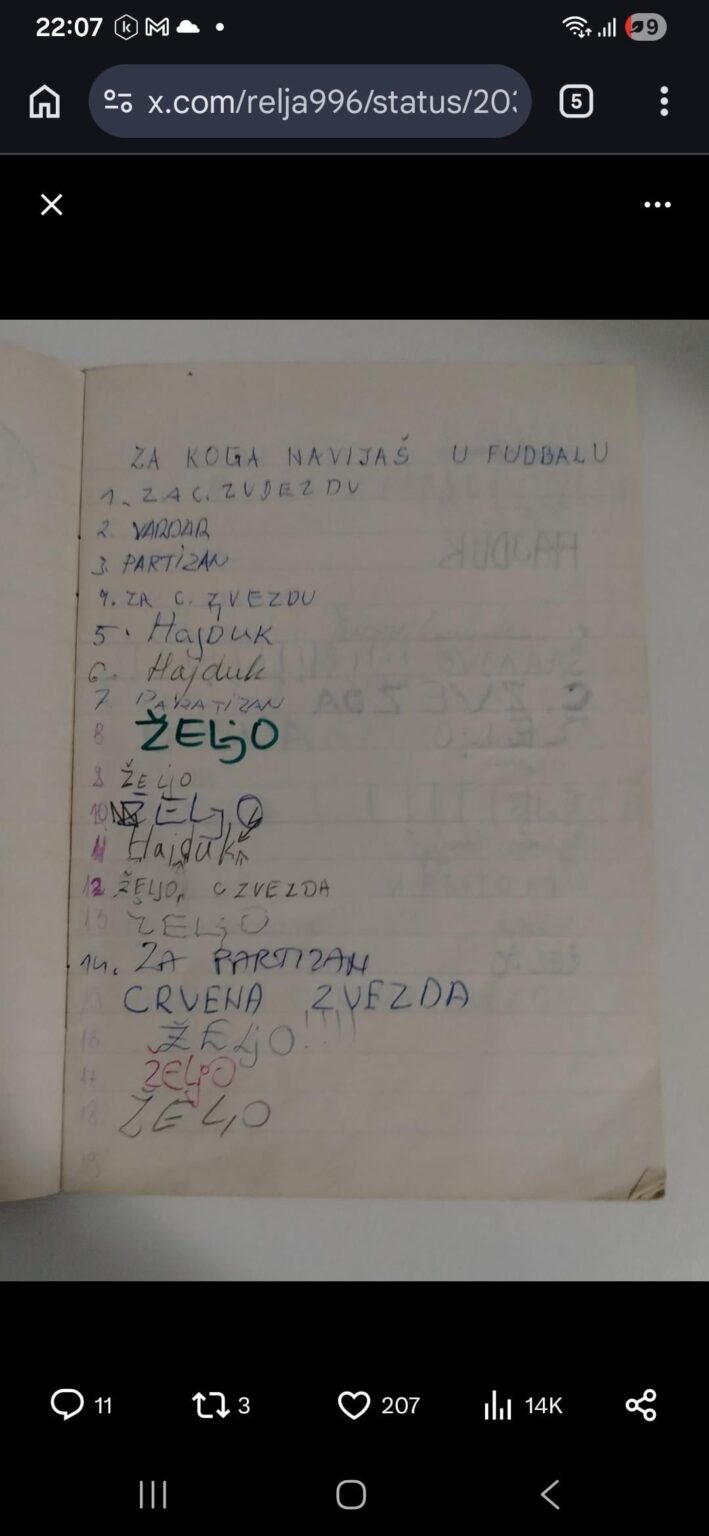 22:07
9
x.com/relja996/status/203
5
ZA KOGA NAVIJAŠ U FUDBALU
1. ZA C. ZVJEZDU
2. VARDAR
3. PARTIZAN
4. ZA C. ZVEZDU
5. HajDUK
6. Hajduk
7 PARATIZAN
8 ŽELjO
9 ŽELjO
10 ŽELJO
11 Hajduk
12 ŽELJO, C ZVEZDA
13 ŽELjO
14. ZA PARTIZAN
15 CRVENA ZVEZDA
16 ŽELjO!!!!
17 ŽELjO
18 ŽELJO
19
11
3
207
14K